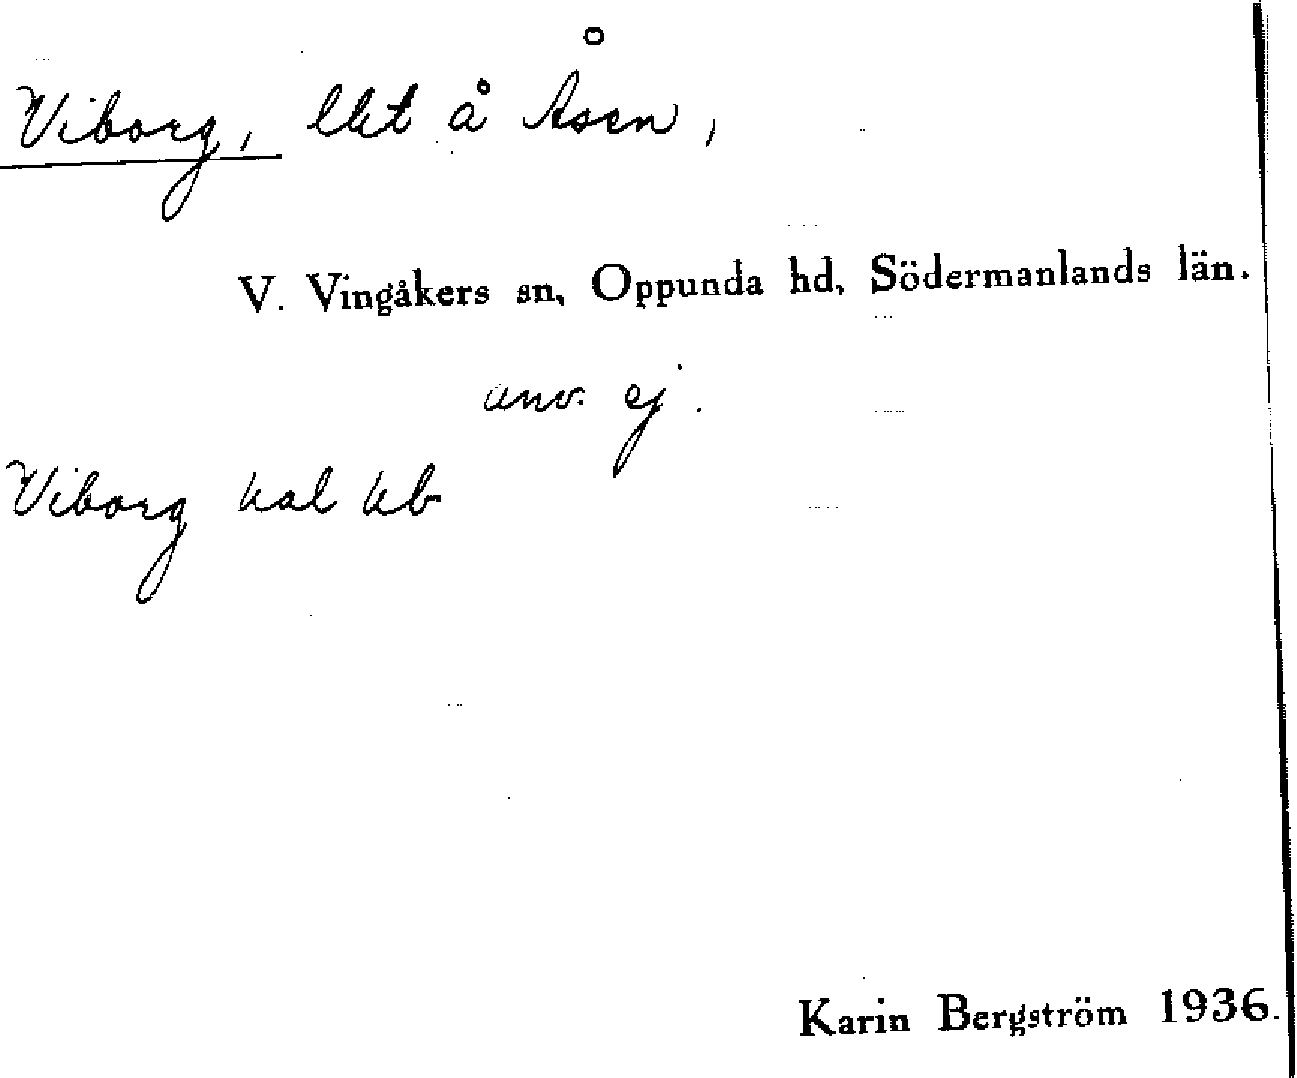 Viborg, lht å Åsen,
V. Vingåkers sn, Oppunda hd, Södermanlands län.
anv. ej.
Viborg hal kb
Karin Bergström 1936.